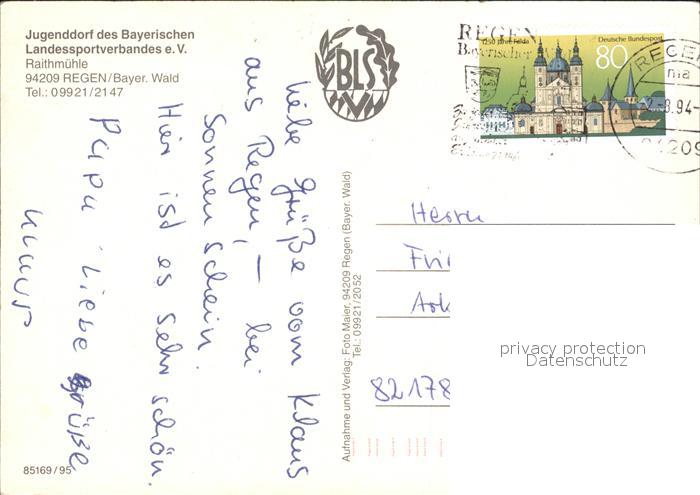 Jugenddorf des Bayerischen
Landessportverbandes e. V.
Raithmühle
94209 REGEN/Bayer. Wald
Tel.: 0 99 21/21 47
BLSV
REGEN
Bayerischer Wald
Deutsche Bundespost
80
REGEN
8.94-
94209
liebe Grüße vom Klaus
aus Regen, – bei
Sonnenschein.
Hier ist es sehr schön.
Papa liebe Grüße
Klaus
Aufnahme und Verlag: Foto Maier, 94209 Regen (Bayer. Wald)
Tel.: 0 99 21/20 52
Herrn
82178
privacy protection
Datenschutz
85169 / 95